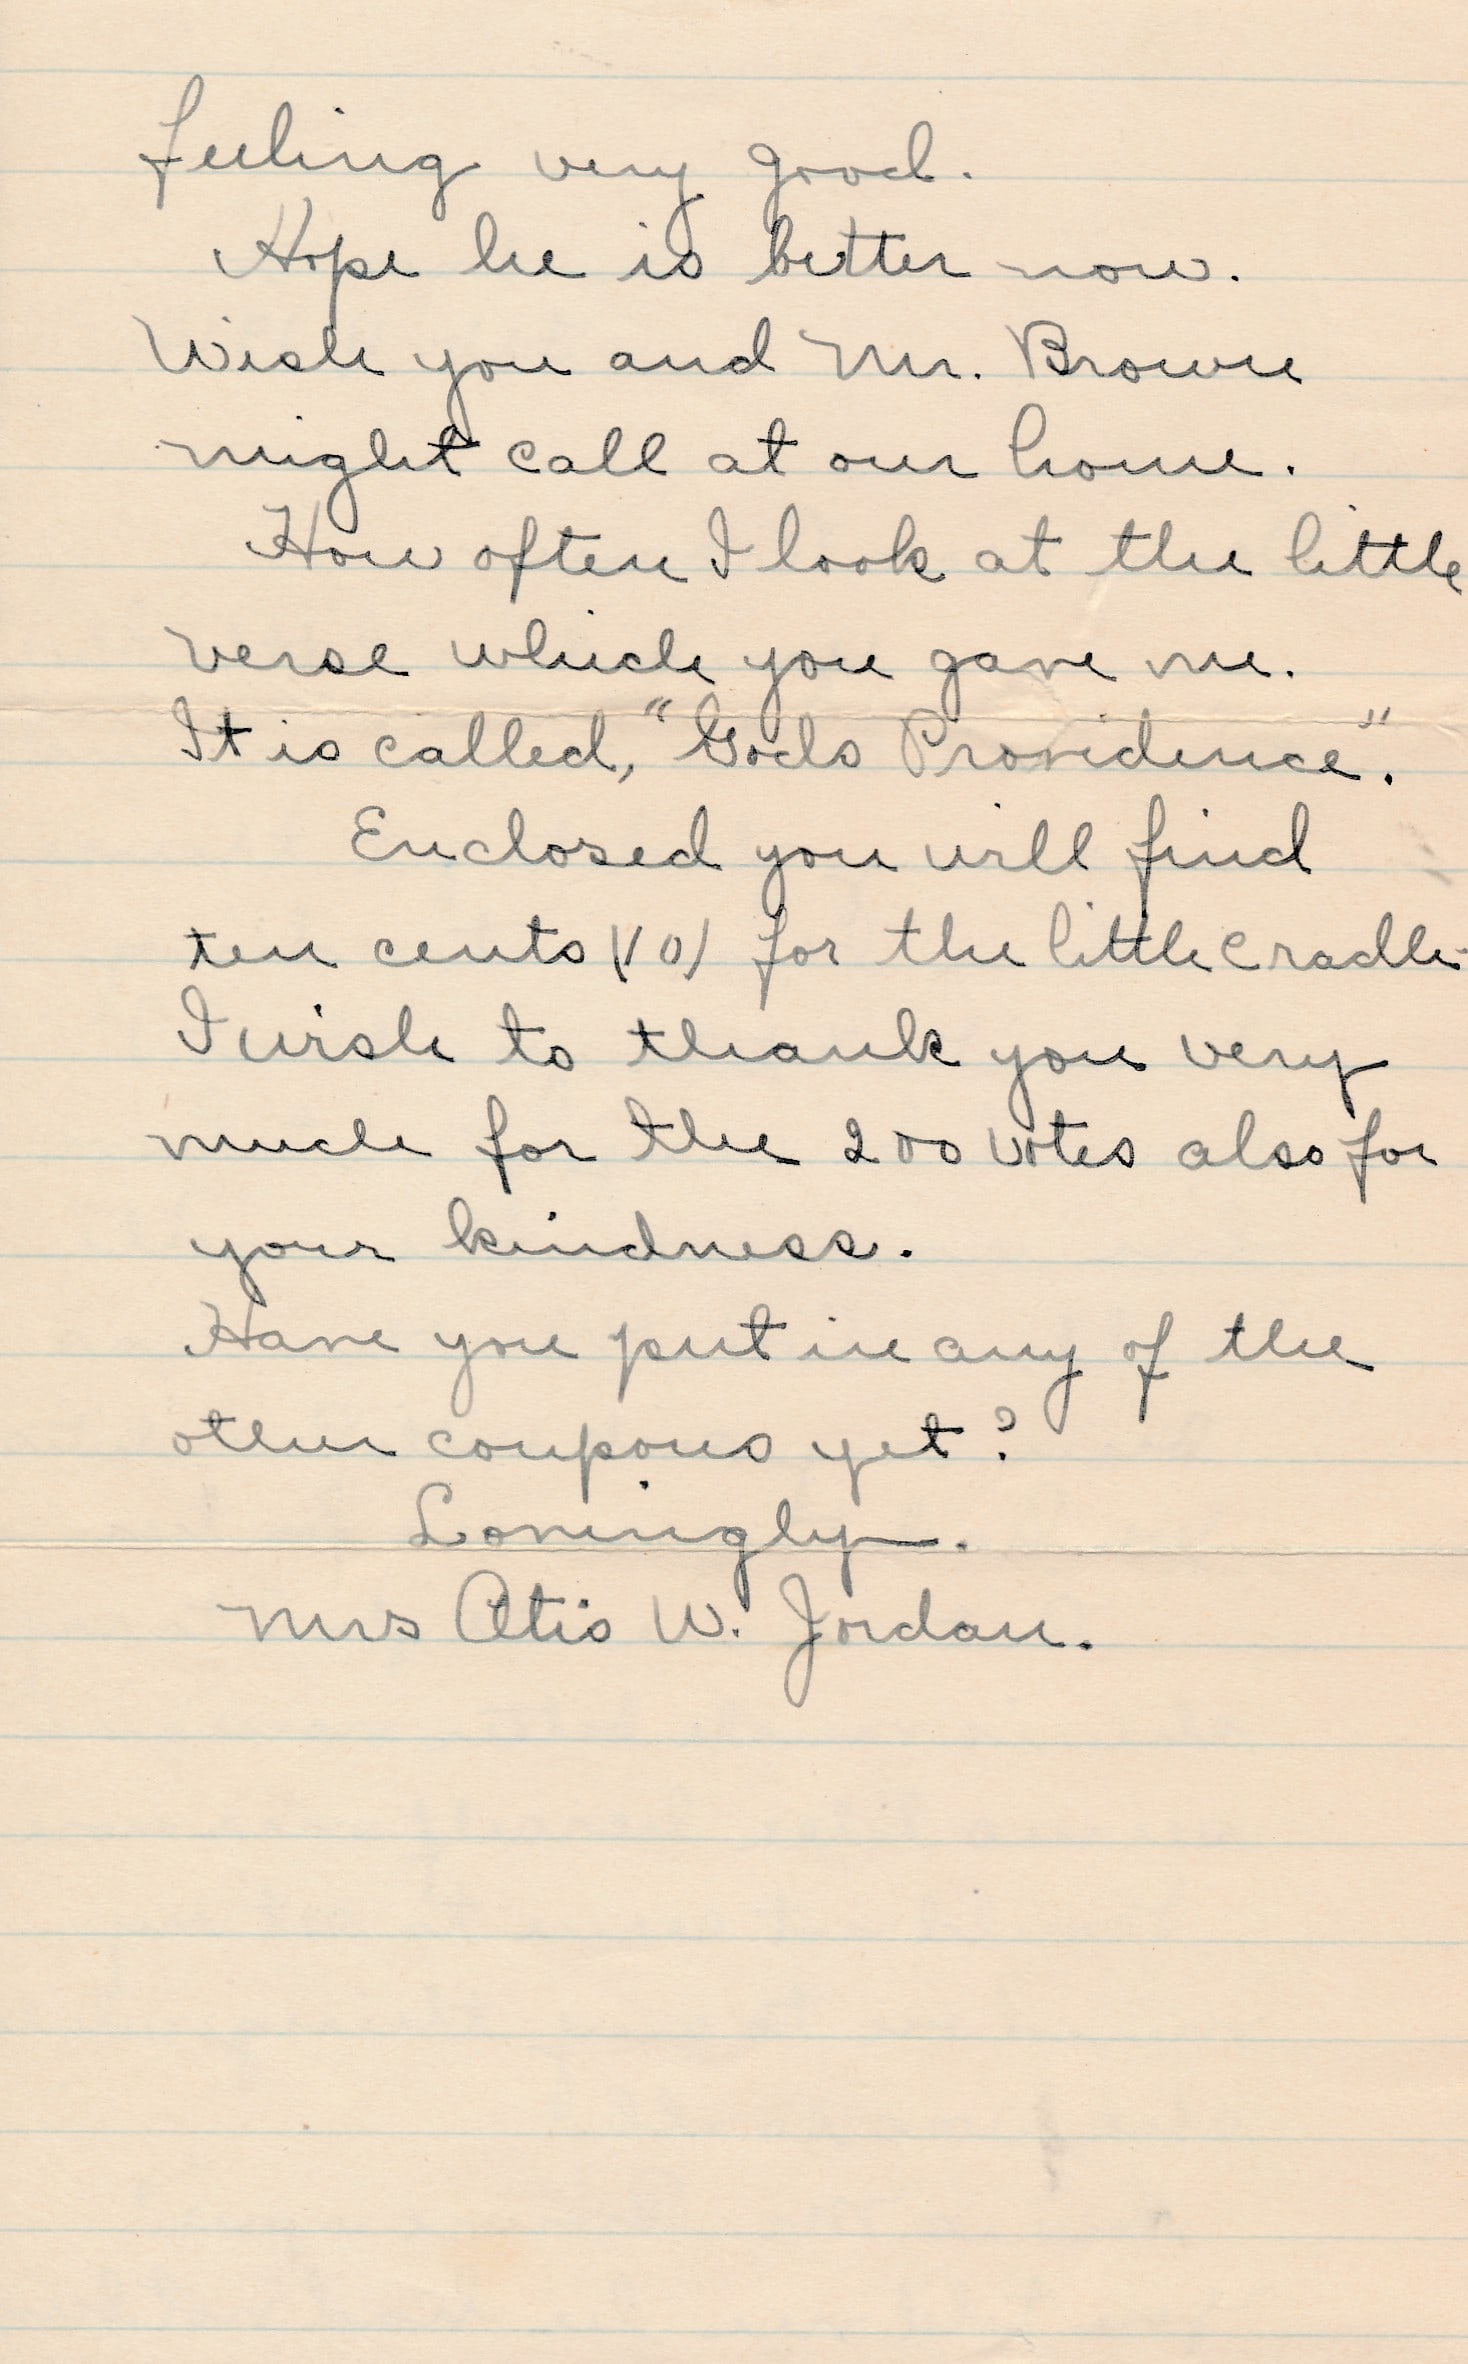 feeling very good.
Hope he is better now.
Wish you and Mr. Brown
might call at our home.
How often I look at the little
verse which you gave me.
It is called, "Gods Providence".
Enclosed you will find
ten cents (10) for the little cradle.
I wish to thank you very
much for the 200 votes also for
your kindness.
Have you put in any of the
other coupons yet?
Lovingly.
Mrs Otis W. Jordan.